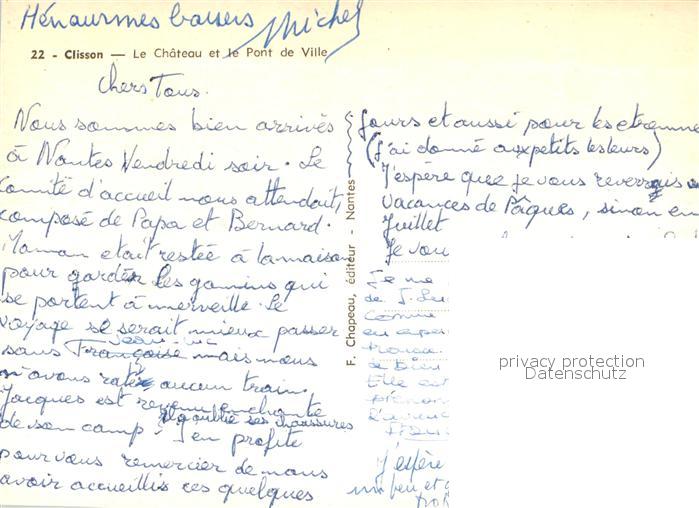 Hénaurmes baisers Michel
22 - Clisson — Le Château et le Pont de Ville
Chers Tous.
Nous sommes bien arrivés
à Nantes Vendredi soir. Le
Comité d'accueil nous attendait,
composé de Papa et Bernard.
Maman etait restée à la maison
pour garder les gamins qui
se portent à merveille. Le
voyage se serait mieux passer
sans Françoise Jean-Luc mais nous
n'avons raté aucun train.
Jacques est revenu enchanté
de son camp. il a oublié ses chaussures
J'en profite
pour vous remercier de nous
avoir accueillis ces quelques
F. Chapeau, éditeur - Nantes
jours et aussi pour les etrennes
(J'ai donné aux petits les leurs)
J'espère que je vous reverrais
vacances de Pâques, sinon en
Juillet
Je vou
Je me
de J. Lu
comme
en
trouva.
se bien
Elle est
prenon
J'espère
un peu et
privacy protection
Datenschutz